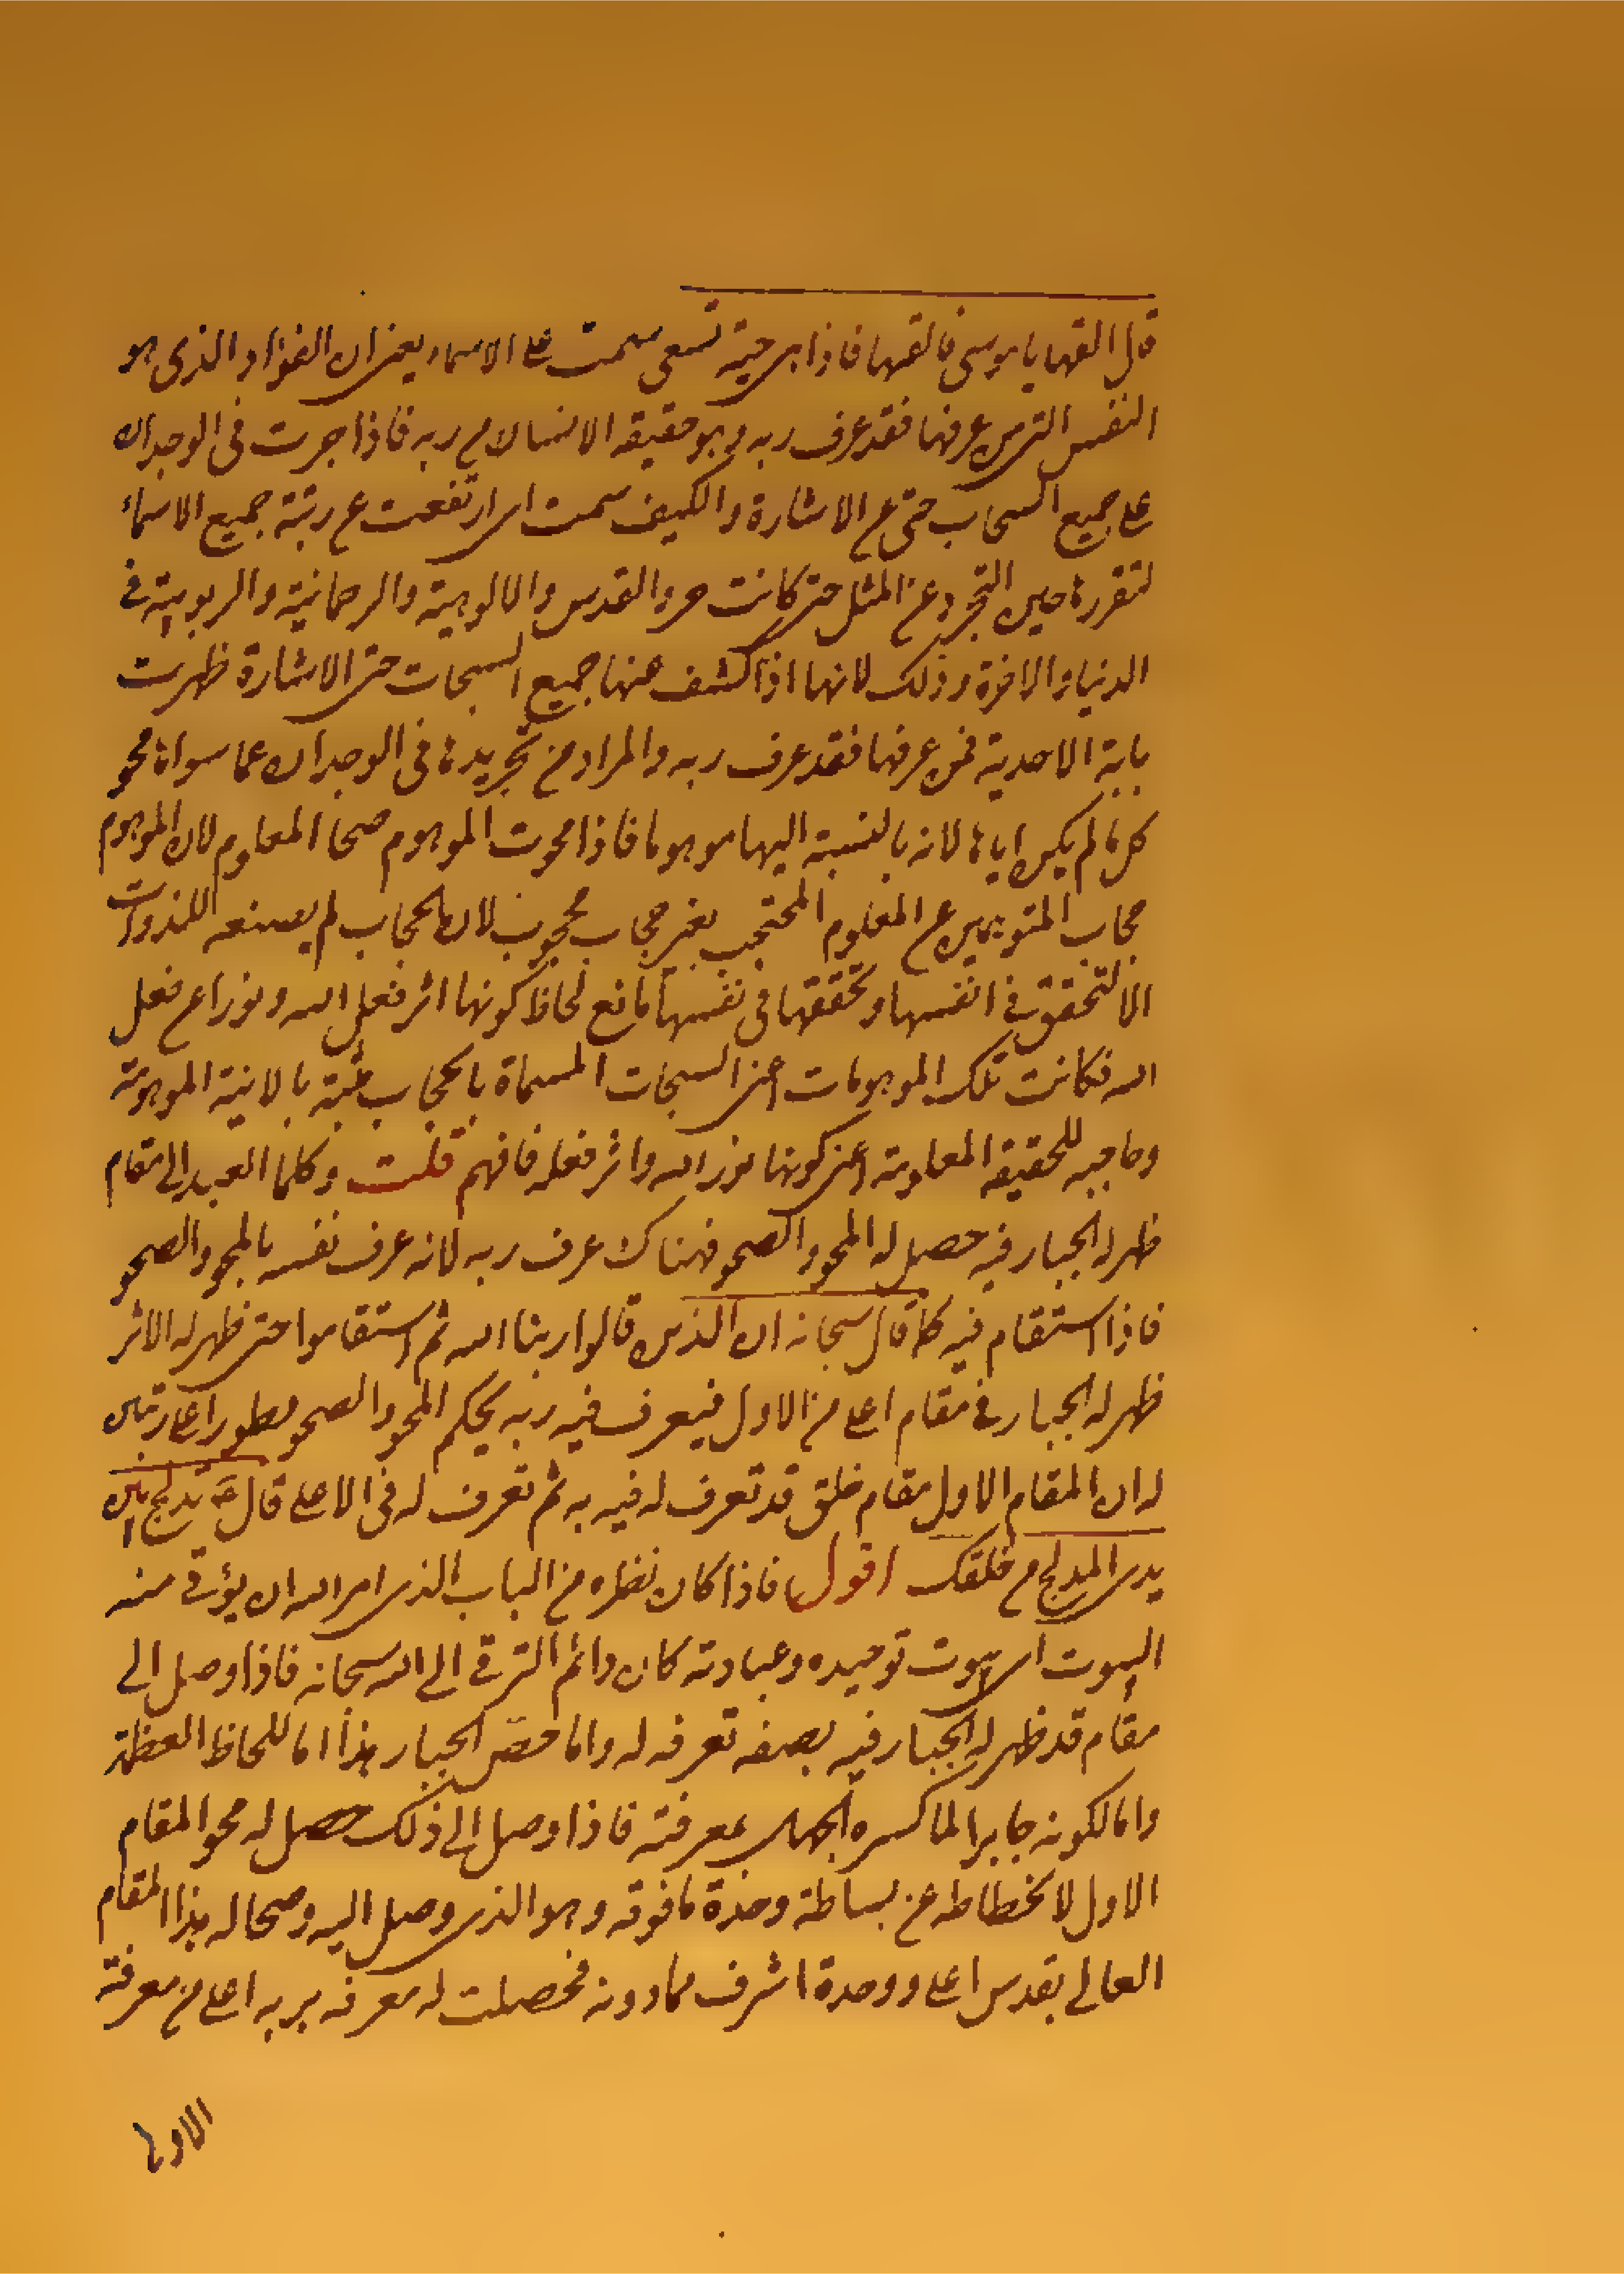 قال القها يا موسى فالقها فاذا هي حية تسعى سمت على الاسماء يعنى ان الفؤاد الذى هو
النفس التى من عرفها فقد عرف ربه وهو حقيقة الانسان من ربه فاذا جردت فى الوجدان
على جميع السحاب حتى عن الاشارة والكيف سمت اى ارتفعت عن رتبة جميع الاسماء
لتقررها حين التجرد عن المثل حتى كانت هى والقدس والالوهية والرحمانية والربوبية فى
الدنيا والاخرة وذلك لانها اذا كشف عنها جميع السبحات حتى الاشارة ظهرت
باية الاحدية فمن عرفها فقد عرف ربه والمراد من تجريدها فى الوجدان عما سواها محو
كل ما لم يكن اياها لانه بالنسبة اليها موهوما فاذا محوت الموهوم صحا المعلوم لان الموهوم
حجاب المتوهمين عن المعلوم المحتجب بغير حجاب محجوب لان الحجاب لم يصنعه للذوات
الا لتحقق فى انفسها وتحققها فى نفسها مانع لحاظ كونها اثر فعل الله ونورا عن فعل
الله فكانت تلك الموهومات اعنى السبحات المسماة بالحجاب مثبتة بالانية الموهومة
وحاجبه للحقيقة المعلومة اعنى كونها نور الله واثر فعله فافهم قلت وكلما العبد الى مقام
ظهر له الجبار فيه حصل له المحو والصحو فهناك عرف ربه لانه عرف نفسه بالمحو والصحو
فاذا استقام فيه كما قال سبحانه ان الذين قالوا ربنا الله ثم استقاموا حتى ظهر له الاثر
ظهر له الجبار فى مقام اعلى من الاول فيعرف فيه ربه بحكم المحو والصحو بطور اعلى
له ان المقام الاول مقام خلق قد تعرف له فيه به ثم تعرف له فى الاعلى قال ع تدلج بين
يدى المدلج من خلقك اقول فاذا كان نظره من الباب الذى امر الله ان يؤتى منه
البيوت اى بيوت توحيده وعبادته كان دائم الترقى الى الله سبحانه فاذا وصل الى
مقام قد ظهر له الجبار فيه بصفة تعرفه له وانما خص الجبار هذا اما للحاظ العظمة
واما لكونه جابرا لما كسره الجهل بمعرفته فاذا وصل الى ذلك حصل له محو المقام
الاول لانحطاطه عن بساطة وحدة ما فوقه وهو الذى وصل اليه وصحا له هذا المقام
العالى بقدس اعلى ووحدة اشرف مما دونه فحصلت له معرفة بربه اعلى من معرفة
الاولى